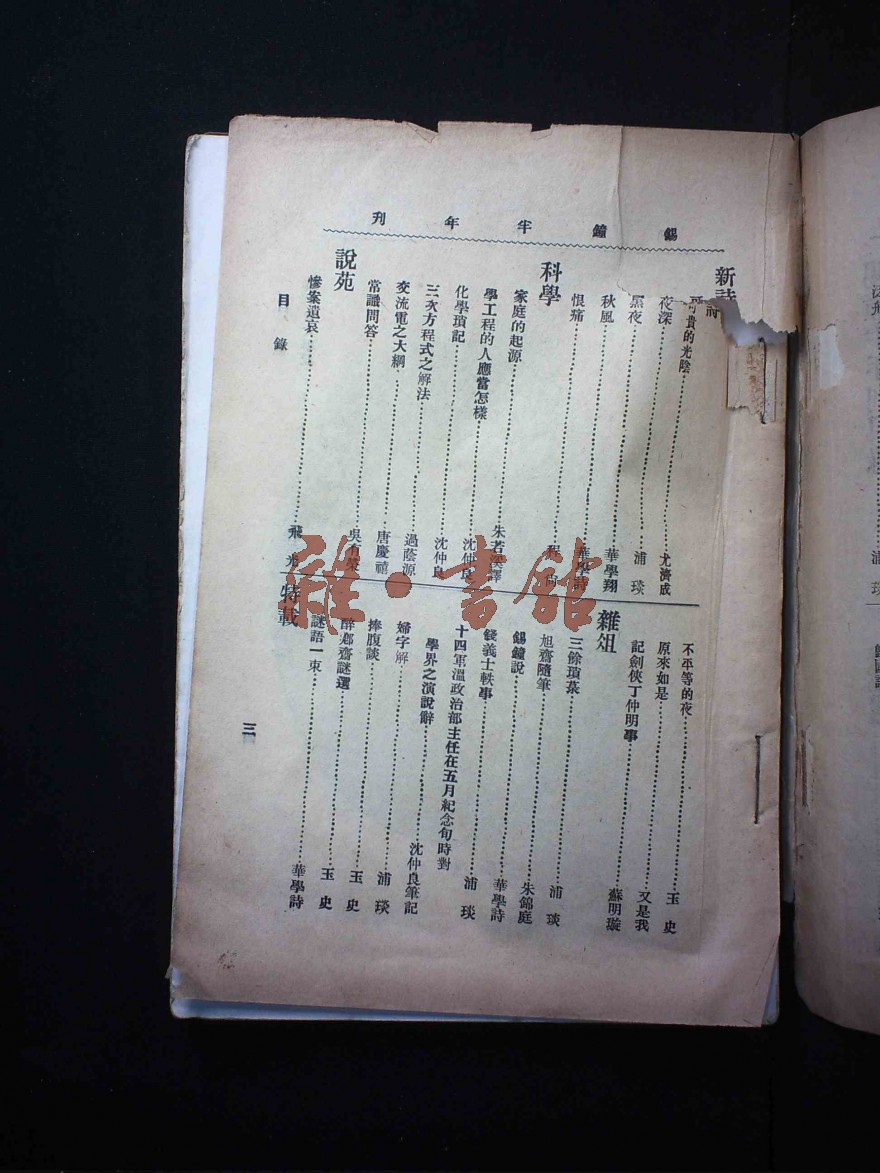 錫鐘半年刊
新詩
可貴的光陰……尤濟成
夜深……浦琰
黑夜……華學翔
秋風……華學詩
恨痛……程
科學
家庭的起源……朱若溪譯
學工程的人應當怎樣……沈仲良
化學瑣記……沈仲良
三次方程式之解法……過蔭源
交流電之大綱……唐慶禧
常識問答……吳有榮
說苑
慘案遺哀……飛光
不平等的夜……玉史
原來如是……又是我
記劍俠丁仲明事……蘇明璇
雜俎
三餘瑣綦……浦琰
旭齋隨筆……朱錦庭
錫鐘說……華學詩
錢義士軼事……浦琰
十四軍溫政治部主任在五月紀念旬時對
學界之演說辭……沈仲良筆記
婦字解……浦琰
捧腹談……玉史
醉鄉齋謎選……玉史
謎語一束……華學詩
特載
目錄
三
雜·書館